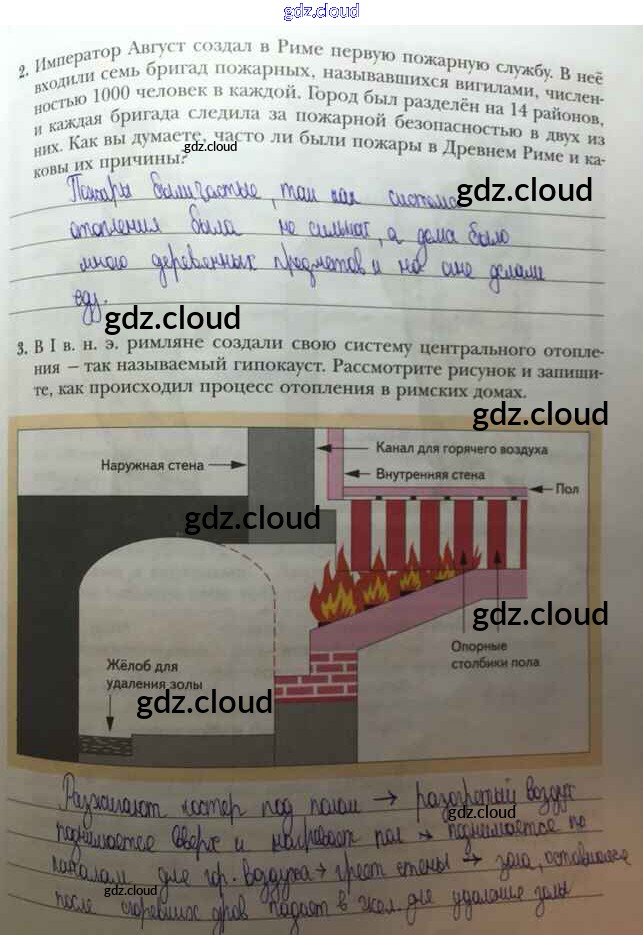 gdz.cloud
2. Император Август создал в Риме первую пожарную службу. В неё
входили семь бригад пожарных, называвшихся вигилами, числен-
ностью 1000 человек в каждой. Город был разделён на 14 районов,
и каждая бригада следила за пожарной безопасностью в двух из
них. Как вы думаете, часто ли были пожары в Древнем Риме и ка-
ковы их причины?
gdz.cloud
Пожары были частые, так как система
gdz.cloud
отопления была не сильная, а дома было
много деревянных предметов и на огне делали
еду.
gdz.cloud
3. В I в. н. э. римляне создали свою систему центрального отопле-
ния – так называемый гипокауст. Рассмотрите рисунок и запиши-
те, как происходил процесс отопления в римских домах.
gdz.cloud
Канал для горячего воздуха
Наружная стена
Внутренняя стена
Пол
gdz.cloud
gdz.cloud
Опорные
столбики пола
Жёлоб для
удаления золы
gdz.cloud
Разжигают костер под полом → разогретый воздух
gdz.cloud
поднимается вверх и нагревает пол → поднимается по
каналам для гор. воздуха → греет стены → зола, оставшаяся
gdz.cloud
после сгоревших дров падает в жел. для удаления золы